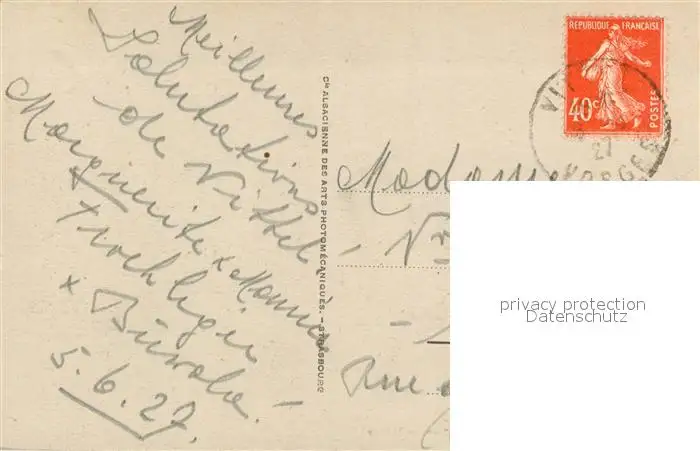 Meilleures
Salutations
de Vittel.
Marguerite x Maurice
x
5.6.27.
Cie ALSACIENNE DES ARTS PHOTOMÉCANIQUES. – STRASBOURG
RÉPUBLIQUE FRANÇAISE
40c
POSTES
VIT
27
VOSGES
Madame
Rue
privacy protection
Datenschutz